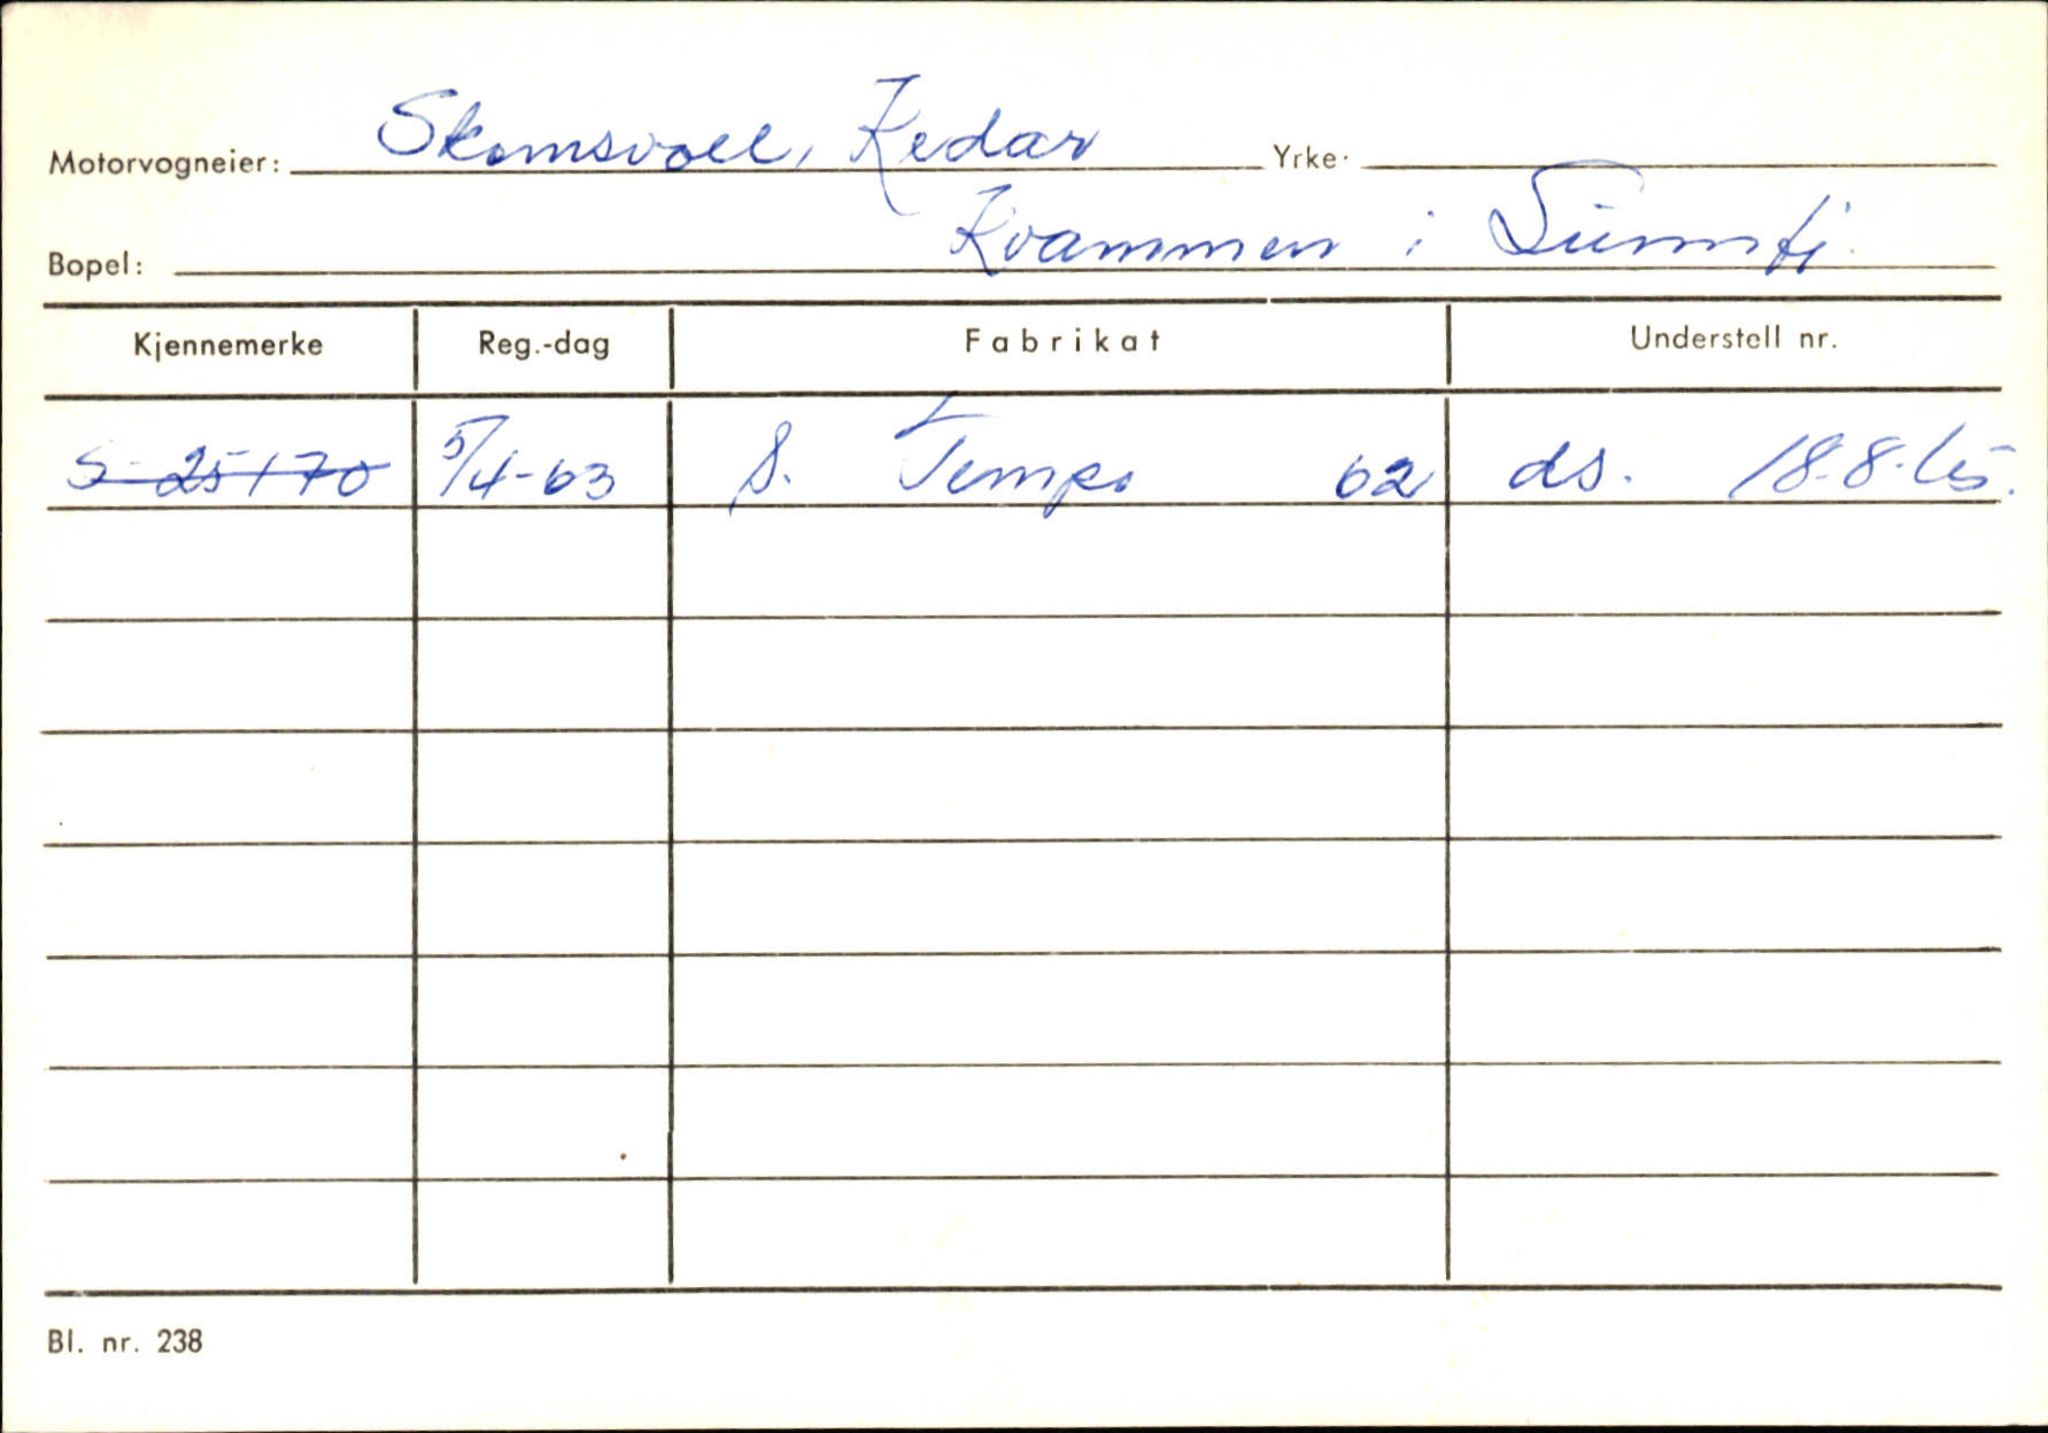 Motorvogneier: Skomsvoll, Kedar Yrke.
Bopel: Kvammen i Sunnfj.
Kjennemerke Reg.-dag Fabrikat Understell nr.
S-25170 5/4-63 S. Tempo 62 ds. 18.8.65.
Bl. nr. 238